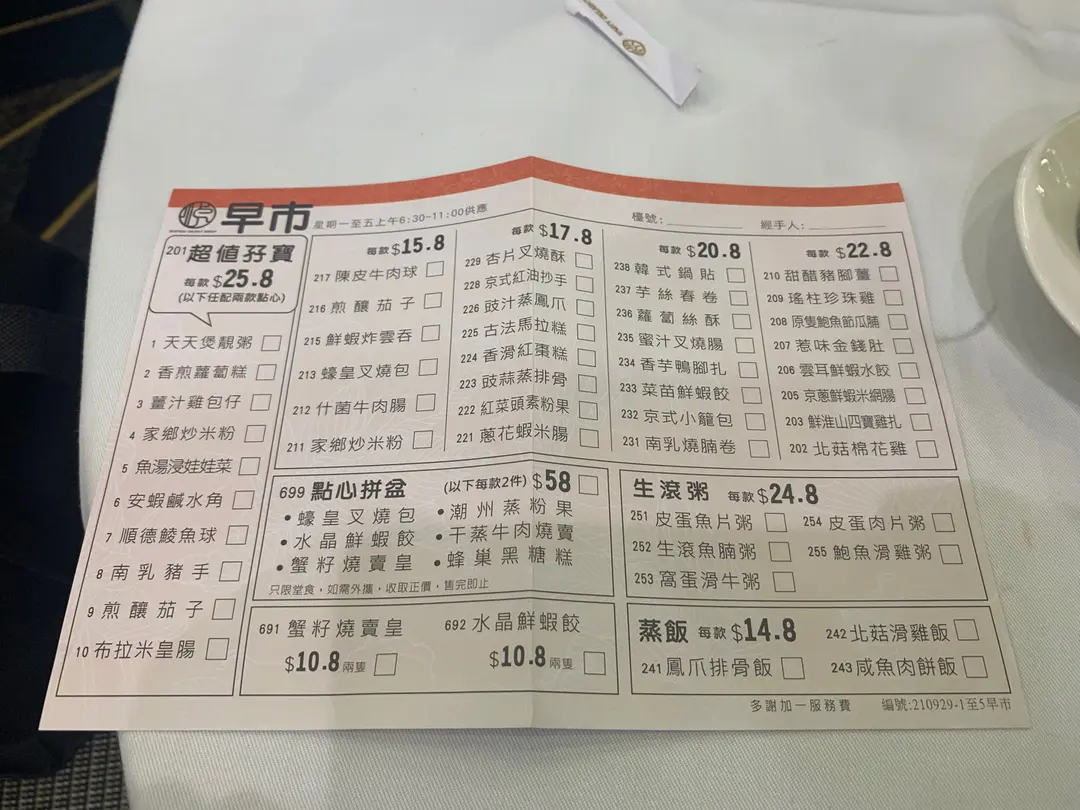 悅 早市 星期一至五上午6:30-11:00供應
檯號:
經手人:
201 超值孖寶
每款 $25.8
(以下任配兩款點心)
1 天天煲靚粥
2 香煎蘿蔔糕
3 薑汁雞包仔
4 家鄉炒米粉
5 魚湯浸娃娃菜
6 安蝦鹹水角
7 順德鯪魚球
8 南乳豬手
9 煎釀茄子
10 布拉米皇腸
每款 $15.8
217 陳皮牛肉球
216 煎釀茄子
215 鮮蝦炸雲吞
213 蠔皇叉燒包
212 什菌牛肉腸
211 家鄉炒米粉
每款 $17.8
229 杏片叉燒酥
228 京式紅油抄手
226 豉汁蒸鳳爪
225 古法馬拉糕
224 香滑紅棗糕
223 豉蒜蒸排骨
222 紅菜頭素粉果
221 蔥花蝦米腸
每款 $20.8
238 韓式鍋貼
237 芋絲春卷
236 蘿蔔絲酥
235 蜜汁叉燒腸
234 香芋鴨腳扎
233 菜苗鮮蝦餃
232 京式小籠包
231 南乳燒腩卷
每款 $22.8
210 甜醋豬腳薑
209 瑤柱珍珠雞
208 原隻鮑魚節瓜脯
207 惹味金錢肚
206 雲耳鮮蝦水餃
205 京蔥鮮蝦米網腸
203 鮮淮山四寶雞扎
202 北菇棉花雞
699 點心拼盆 (以下每款2件) $58
• 蠔皇叉燒包
• 水晶鮮蝦餃
• 蟹籽燒賣皇
• 潮州蒸粉果
• 干蒸牛肉燒賣
• 蜂巢黑糖糕
只限堂食，如需外攜，收取正價，售完即止
生滾粥 每款 $24.8
251 皮蛋魚片粥
252 生滾魚腩粥
253 窩蛋滑牛粥
254 皮蛋肉片粥
255 鮑魚滑雞粥
691 蟹籽燒賣皇
$10.8 兩隻
692 水晶鮮蝦餃
$10.8 兩隻
蒸飯 每款 $14.8
241 鳳爪排骨飯
242 北菇滑雞飯
243 咸魚肉餅飯
多謝加一服務費
編號:210929-1至5早市